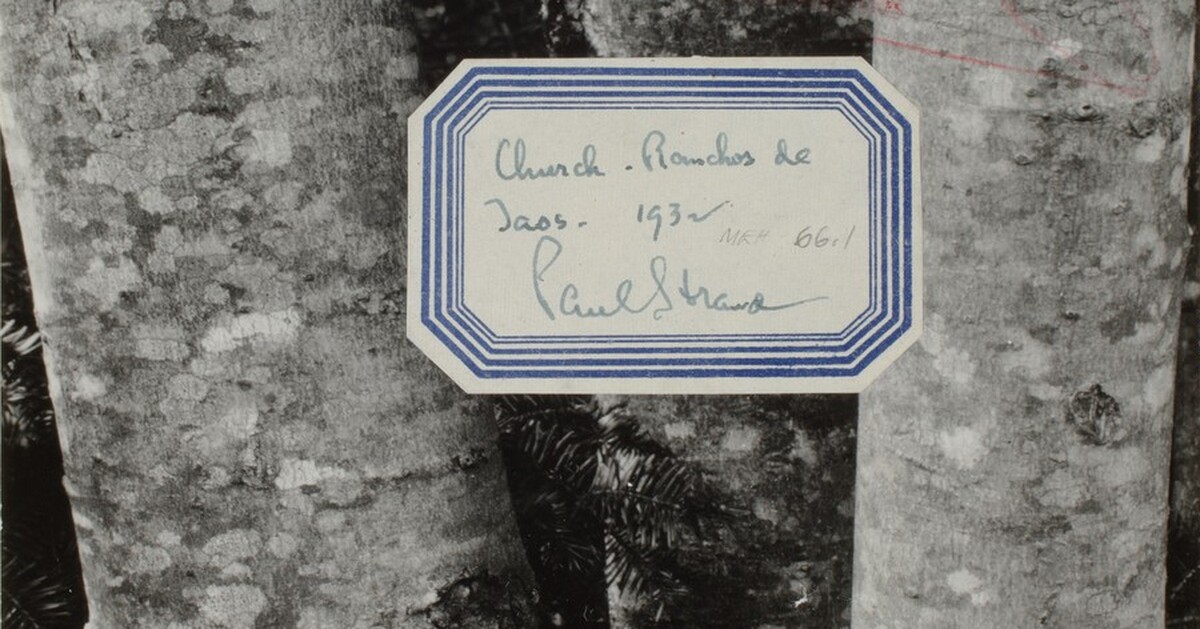 Church - Ranchos de
Taos - 1932
MEH 66.1
Paul Strand